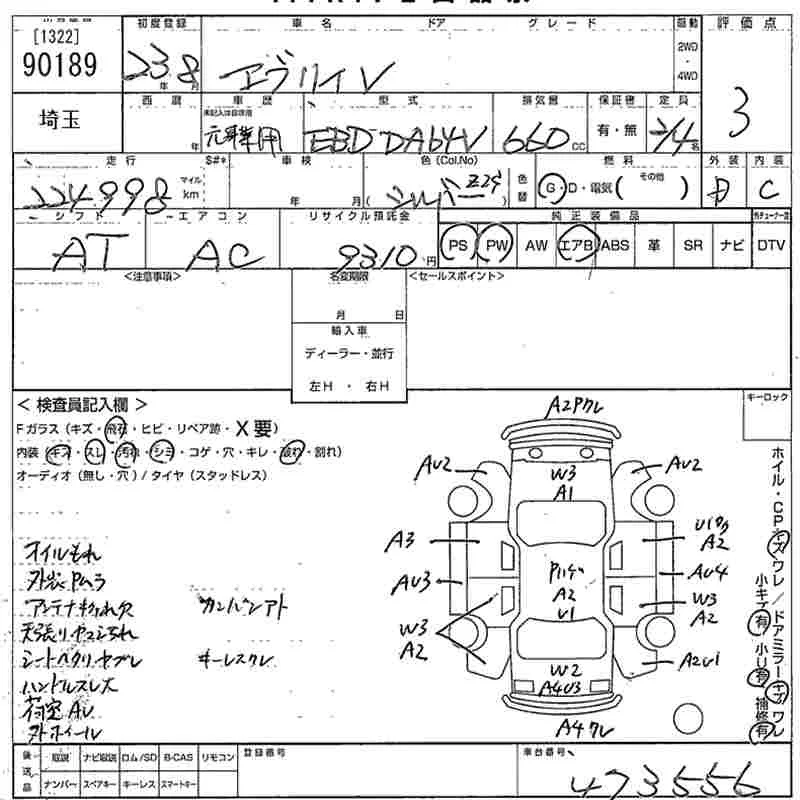 [1322]
90189
初度登録
車名 ドア グレード
駆動
評価点
23年8月
エブリイV
2WD
・
4WD
3
埼玉
西暦
年
車歴
未記入は自家用
元事業用
型式
EBD DA64V
排気量
660cc
保証書
有・無
定員
2/4名
走行
224998
マイル
km
S#*
車検
年 月
色(Col.No)
シルバー Z2S
色替
燃料
G・D・電気( その他 )
外装
D
内装
C
シフト
AT
エアコン
AC
リサイクル預託金
9310円
純正装備品
PS PW AW エアB ABS 革 SR ナビ DTV
<注意事項>
名変期限
月 日
輸入車
ディーラー・並行
左H ・ 右H
<セールスポイント>
<検査員記入欄>
キーロック
Fガラス(キズ・飛石・ヒビ・リペア跡・X要)
内装(キズ・スレ・汚れ・シミ・コゲ・穴・キレ・破れ・割れ)
オーディオ(無し・穴)/タイヤ(スタッドレス)
オイルもれ
外装Pムラ
アンテナキャップ欠
カンバンアト
天張りヤブレ
シートヘタリヤブレ
キーレスクレ
ハンドルスレ大
荷室AU
外ホイール
A2Pクレ
AU2
AU2
W3
A1
A3
A2
AU3
AU4
A2
U1
W3
A2
W3
A2
A2U1
W2
A4U3
A4クレ
ホイル・CPキズワレ/ドアミラーキズワレ
小キズ有 小U有 補修有
後送品
取説 ナビ取説 ロム/SD B-CAS リモコン
ナンバー スペアキー キーレス スマートキー
登録番号
車台番号
473556